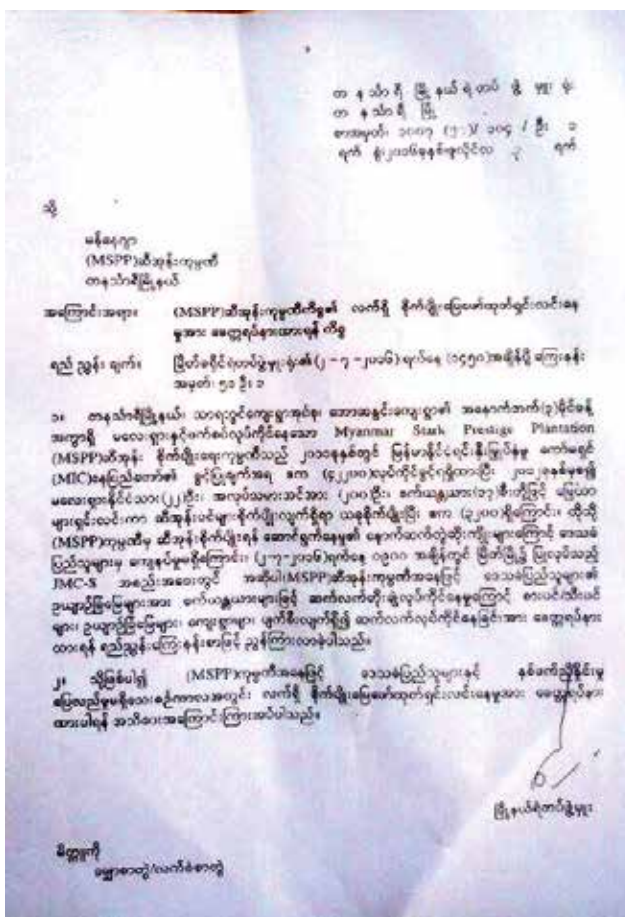 တ န သ်ာရီ မြို့ နယ် ရဲ တပ် ဖွဲ့ မှူး ရုံး
တ န သ်ာရီ မြို့
ရက် စွဲ၊ ၂၀၁၆ခုနှစ်ဇူလိုင်လ ၃ ရက်
သို့
မန်နေဂျာ
(MSPP)ဆီအုန်းကုမ္ပဏီ
တနင်္သာရီမြို့နယ်
အကြောင်းအရာ။ (MSPP)ဆီအုန်းကုမ္ပဏီကိစ္စ၏ လက်ရှိ စိုက်ပျိုးမြေဖော်ထုတ်ရှင်းလင်းနေ
မှုအား ခေတ္တရပ်နားထားရန် ကိစ္စ
ရည် ညွှန်း ချက်။ မြိတ်ခရိုင်ရဲတပ်ဖွဲ့မှူးရုံး၏ (၂-၇-၂၀၁၆)ရက်နေ့ (၁၄၅၀)အချိန်ပို့ ကြေးနန်း
အမှတ်၊ ၅၁ ဦး ၁
၁။ တနင်္သာရီမြို့နယ်၊ သာရဘွင်ကျေးရွာအုပ်စု၊ ဘောဆနွင်းကျေးရွာ၏ အနောက်ဘက်(၃)မိုင်ခန့်
အကွာရှိ မလေးရှားနှင့်ဖက်စပ်လုပ်ကိုင်နေသော Myanmar Stark Prestige Plantation
(MSPP)ဆီအုန်း စိုက်ပျိုးရေးကုမ္ပဏီသည် ၂၀၁၁ခုနှစ်တွင် မြန်မာနိုင်ငံရင်းနှီးမြှုပ်နှံမှု ကော်မရှင်
(MIC)နေပြည်တော်၏ ခွင့်ပြုချက်အရ ဧက (၄၂၂၀၀)လုပ်ကိုင်ခွင့်ရရှိထားပြီး ၂၀၁၂ခုနှစ်မှစ၍
မလေးရှားနိုင်ငံသား(၂၂)ဦး၊ အလုပ်သမားအင်အား (၂၀၀)ဦး၊ စက်ယန္တယား(၁၇)စီးတို့ဖြင့် မြေယာ
များရှင်းလင်းကာ ဆီအုန်းပင်များစိုက်ပျိုးလျက်ရှိရာ ယခုစိုက်ပျိုးပြီး ဧက (၃၂၀၀)ရှိကြောင်း၊ ထိုသို့
(MSPP)ကုမ္ပဏီမှ ဆီအုန်းစိုက်ပျိုးရန် ဆောင်ရွက်နေမှု၏ နောက်ဆက်တွဲဆိုးကျိုးများကြောင့် ဒေသခံ
ပြည်သူများမှ ကျေနပ်မှုမရှိကြောင်း၊ (၂-၇-၂၀၁၆)ရက်နေ့ ၀၉၀၀ အချိန်တွင် မြိတ်မြို့၌ ပြုလုပ်သည့်
JMC-S အစည်းအဝေးတွင် အဆိုပါ(MSPP)ဆီအုန်းကုမ္ပဏီအနေဖြင့် ဒေသခံပြည်သူများ၏
ဥယျာဉ်ခြံမြေများအား စက်ယန္တယားများဖြင့် ဆက်လက်တိုးချဲ့လုပ်ကိုင်နေမှုကြောင့် စားပင်/သီးပင်
များ၊ ဥယျာဉ်ခြံမြေများ၊ ကျေးရွာများ ပျက်စီးလျက်ရှိ၍ ဆက်လက်လုပ်ကိုင်နေခြင်းအား ခေတ္တရပ်နား
ထားရန် ရည်ညွှန်းကြေးနန်းစာဖြင့် ညွှန်ကြားလာခဲ့ပါသည်။
၂။ သို့ဖြစ်ပါ၍ (MSPP)ကုမ္ပဏီအနေဖြင့် ဒေသခံပြည်သူများနှင့် နှစ်ဖက်ညှိနှိုင်းမှု
ပြေလည်မှုမရှိသေးစဉ်ကာလအတွင်း လက်ရှိ စိုက်ပျိုးမြေဖော်ထုတ်ရှင်းလင်းနေမှုအား ခေတ္တရပ်နား
ထားပါရန် အသိပေးအကြောင်းကြားအပ်ပါသည်။
မြို့နယ်ရဲတပ်ဖွဲ့မှူး
မိတ္တူကို
မျှောစာတွဲ/လက်ခံစာတွဲ